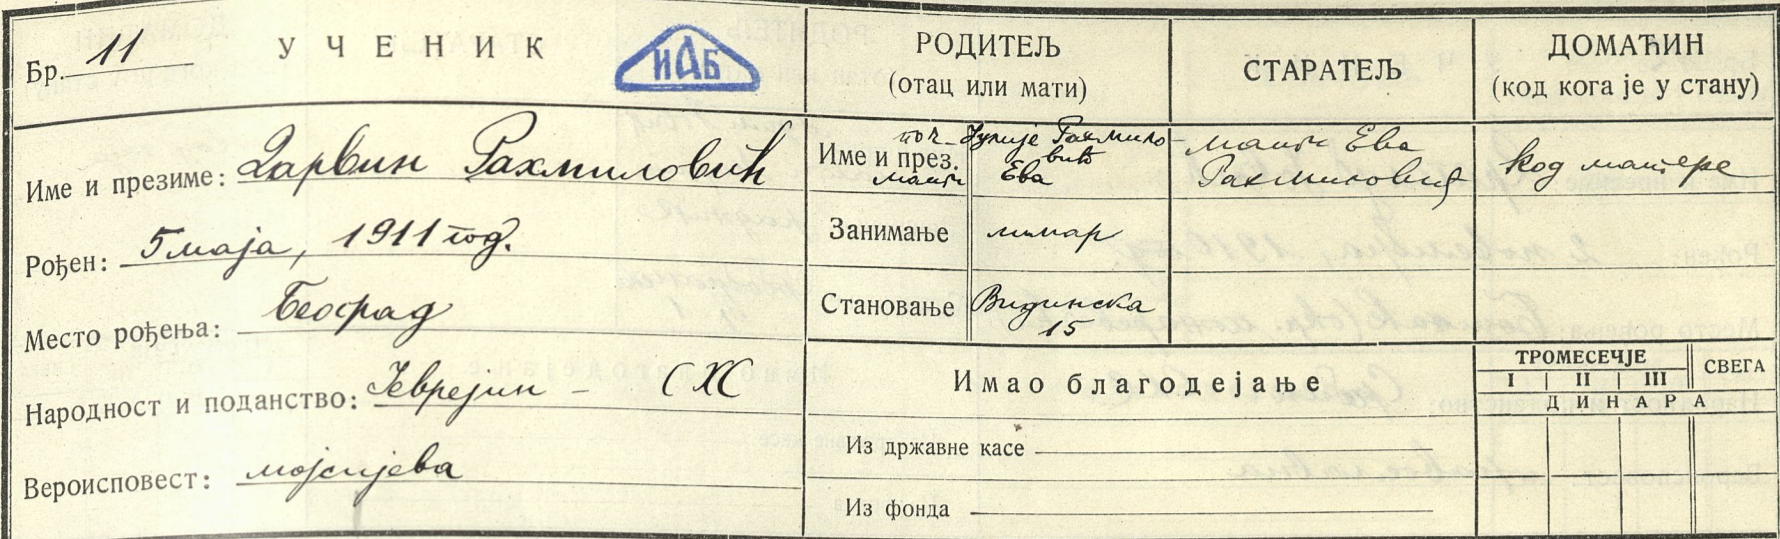 Бр. 11 УЧЕНИК
ИАБ
Име и презиме: Дарвин Рахмиловић
Рођен: 5 маја, 1911 год.
Место рођења: Београд
Народност и поданство: Јеврејин – СХС
Вероисповест: мојсијева
РОДИТЕЉ
(отац или мати)
СТАРАТЕЉ
ДОМАЋИН
(код кога је у стану)
поч. Јулије Рахмило-
вић
Име и през.
мати Ева
мати Ева
Рахмиловић
код матере
Занимање лимар
Становање Видинска
15
Имао благодејање
ТРОМЕСЕЧЈЕ
I II III
СВЕГА
ДИНАРА
Из државне касе
Из фонда